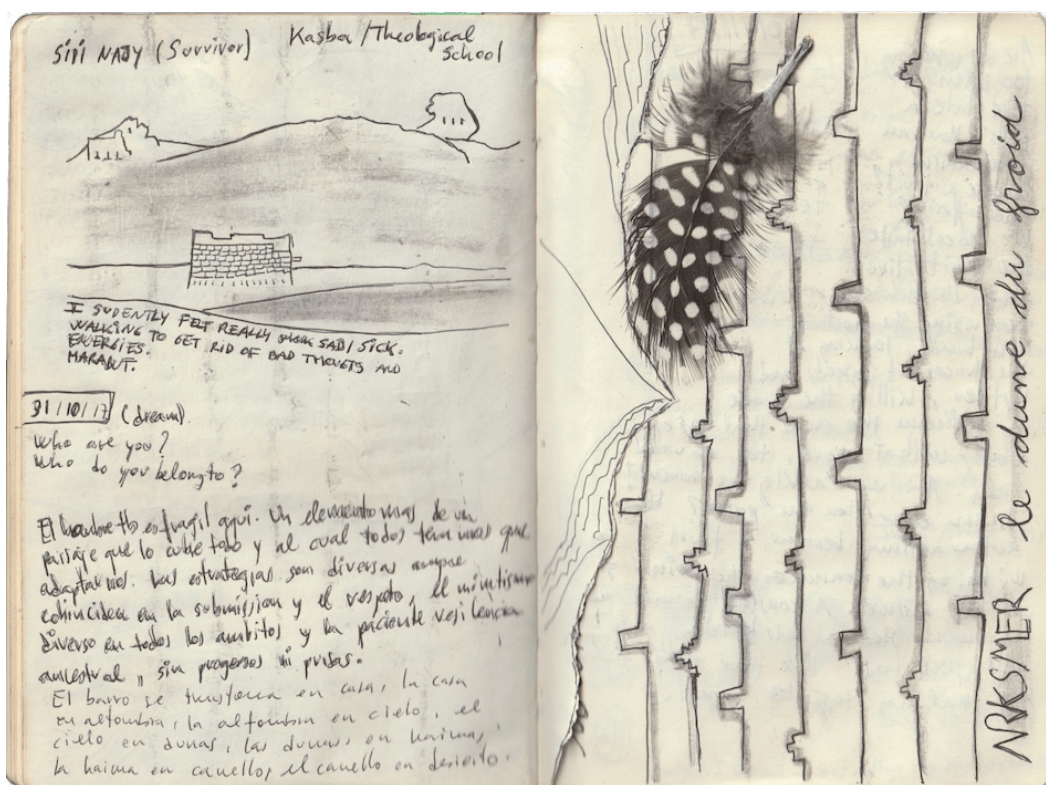 SIDI NAJY (Survivor)
Kasba / Theological
School
I SUDENTLY FELT REALLY SAD / SICK.
WALKING TO GET RID OF BAD THOUGTS AND
ENERGIES.
MARABUT.
31/10/17 (dream)
Who are you?
Who do you belong to?
El hombre es fragil aqui. Un elemento mas de un
paisaje que lo cubre todo y al cual todos tenemos que
adaptarnos. Las estrategias son diversas aunque
coinciden en la submission y el respeto, el mimetismo
diverso en todos los ambitos y la paciente resiliencia
ancestral, sin progresos ni prisas.
El barro se transforma en casa, la casa
en alfombra, la alfombra en cielo, el
cielo en dunas, las dunas en haima,
la haima en camello, el camello en desierto.
NRKSMER le dame du froid